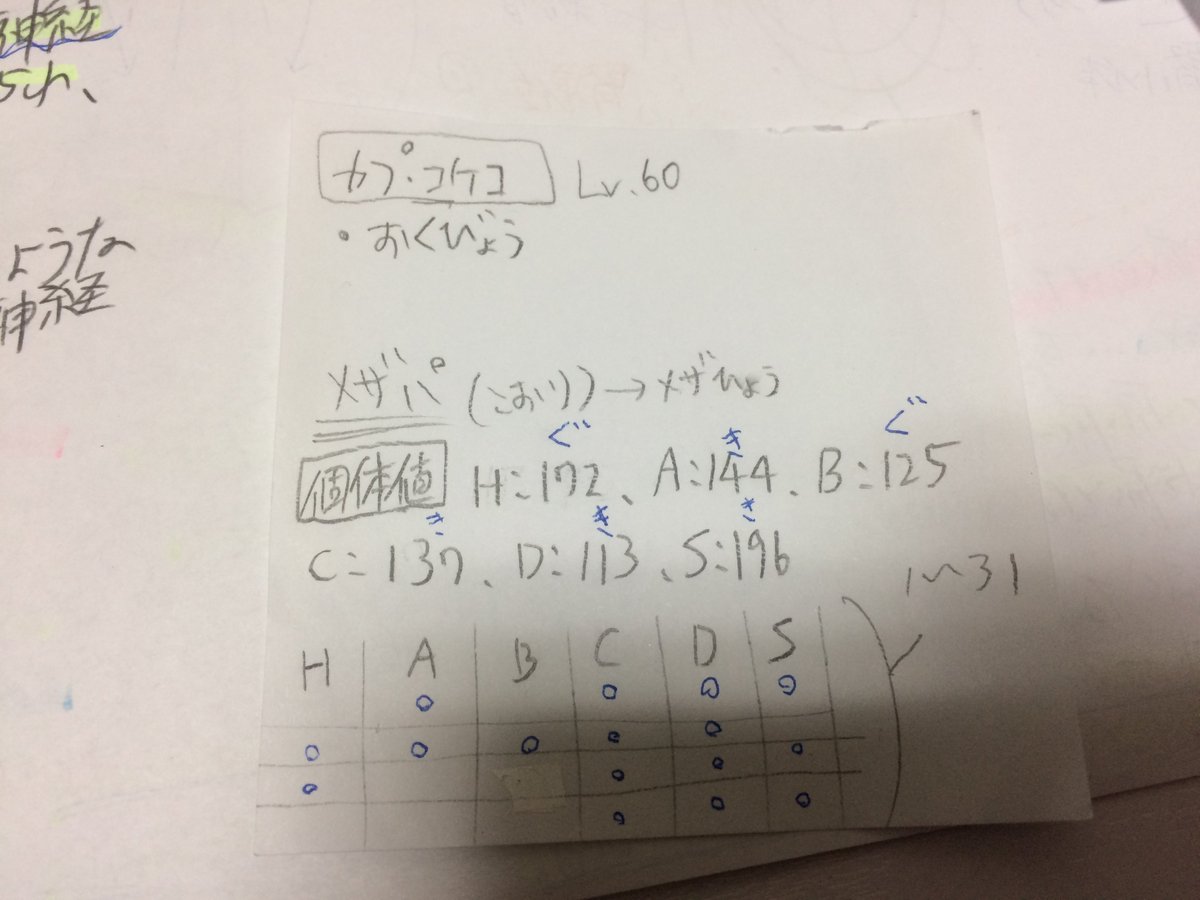 神経
られ、
ような
神経
カプ・コケコ Lv.60
・おくびょう
メザパ(こおり)→メザひょう
ぐ き ぐ
個体値 H:172、A:144、B:125
き き き
C:137、D:113、S:196
1〜31
H A B C D S